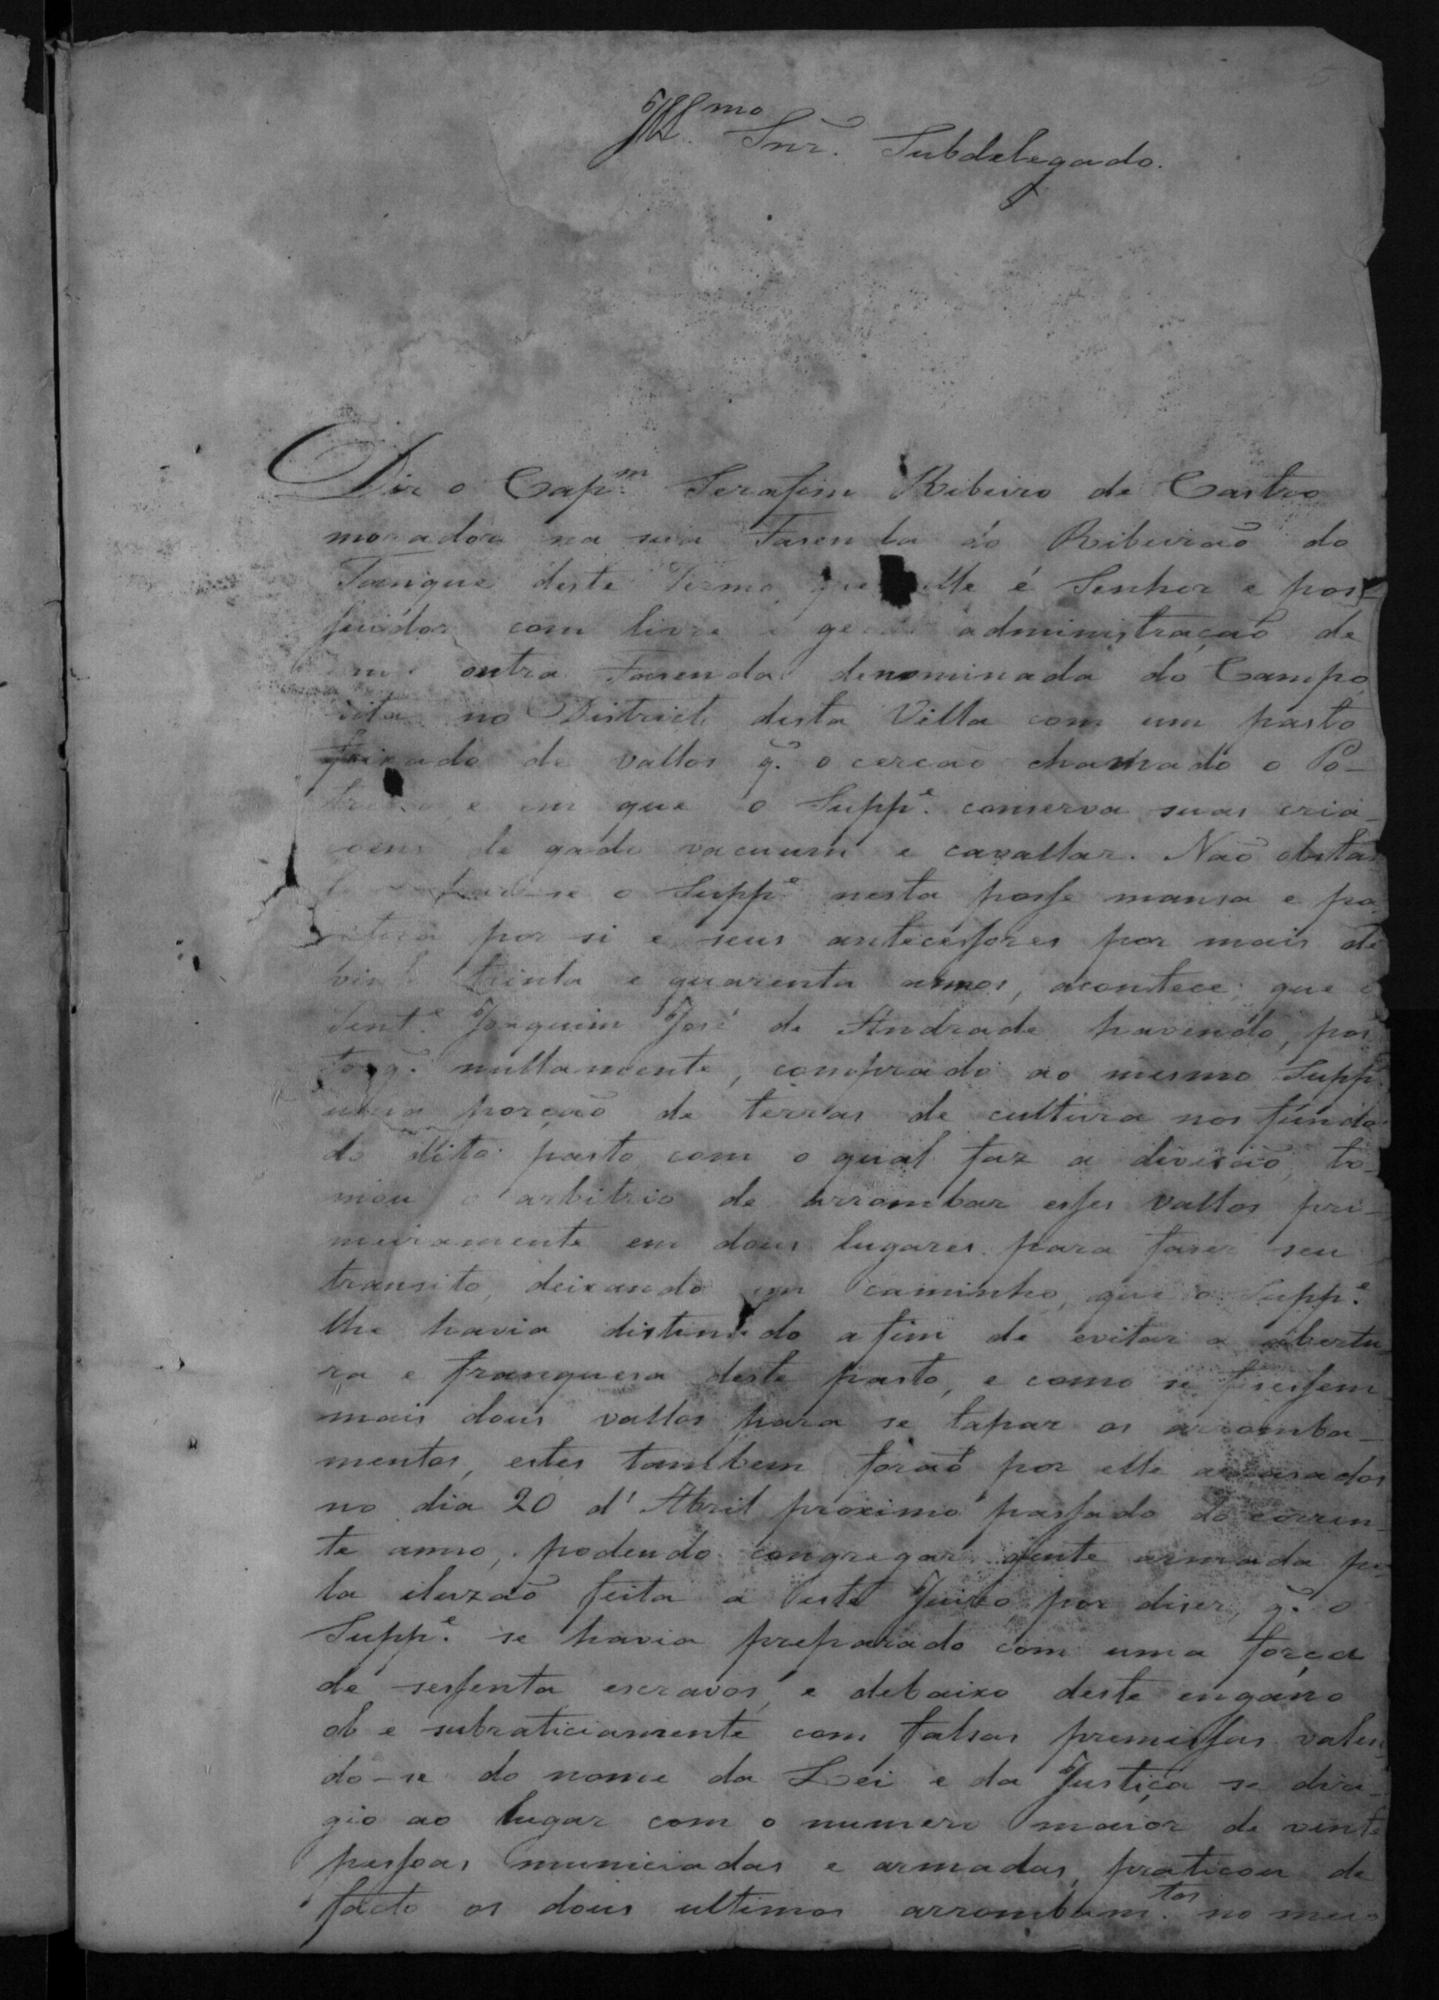 Ill.mo Snr. Subdelegado.
Diz o Cap.m Serafim Ribeiro de Castro
morador na sua Fasenda do Ribeirão do
Tanque deste Termo, que elle é Senhor e pos-
suidor com livre e geral administração de
outra Fasenda denominada do Campo
sita no Districto desta Villa com um pasto
feixado de vallos q̃. o cercão chamado o Po-
e em que o Supp.e conserva suas cria-
coens de gado vacuum e cavallar. Não obstan
o Supp.e nesta posse mansa e pa
cifica por si e seus antecessores por mais de
vinte trinta e quarenta annos, acontece, que o
Tent.e Joaquim José de Andrade havendo, pos
to q̃. nullamente, comprado ao mesmo Supp.e
uma porção de terras de cultura nos fundos
do dito pasto com o qual faz a divisão, to-
mou o arbitrio de arrombar esses vallos pri-
meiramente em dous lugares para faser seu
transito, deixando um caminho, que o Supp.e
lhe havia distinado afim de evitar a abertu
ra e franquesa deste pasto, e como se fisessem
mais dous vallos para se tapar os arromba-
mentos, estes tambem forão por elle arrasados
no dia 20 d' Abril proximo passado do corren-
te anno, podendo congregar gente armada pe
la iluzão feita a este Juizo por diser, q̃. o
Supp.e se havia preparado com uma força
de sessenta escravos, e debaixo deste engano
ob e subraticiamente com falsas premissas valen
do-se do nome da Lei e da Justiça se diri-
gio ao lugar com o numero maior de vinte
pessoas municiadas e armadas, praticou de
facto os dous ultimos arrombam.tos no meio